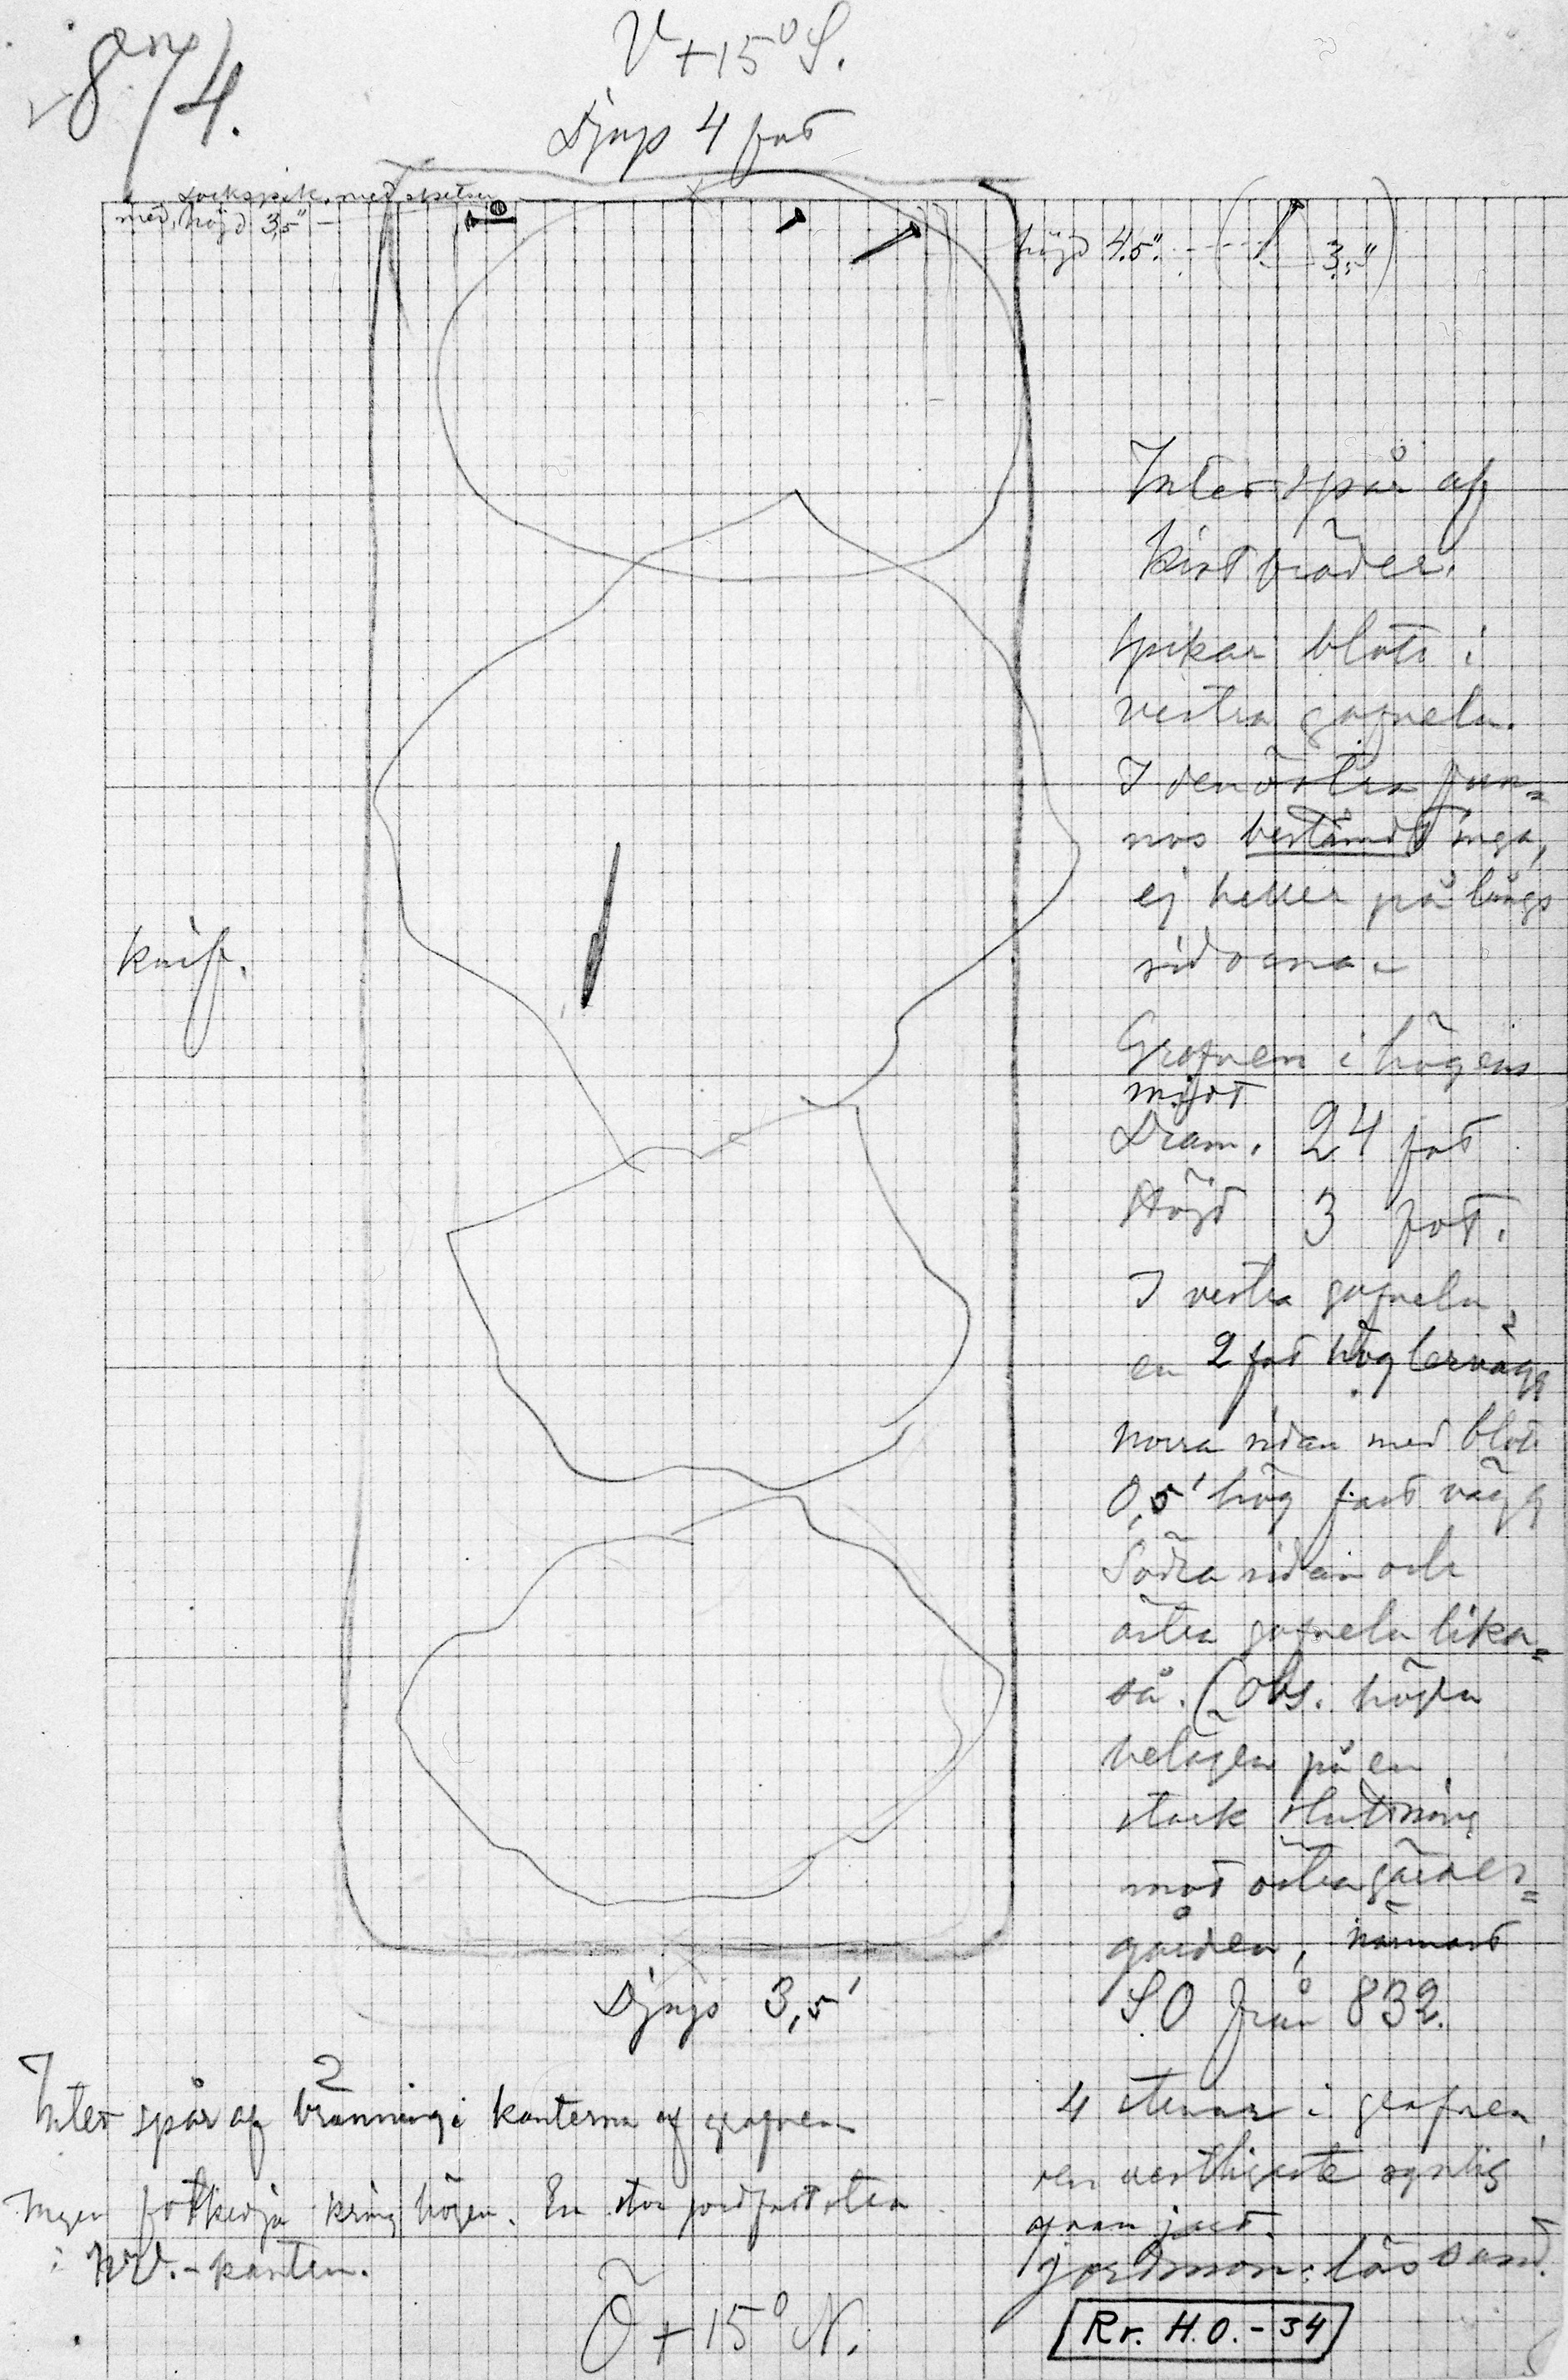 874.
V + 15° S.
Djup 4 fot
Lockspik med spetsen
ned, höjd 3,5" –
höjd 4.5". 3."
Intet spår af
kistbräder.
Spikar blott i
vestra gafveln.
I den östra fun=
nos bestämdt inga,
ej heller på långs
sidorna.
knif.
Grafven i högens
midt
Diam. 24 fot
Höjd 3 fot.
I vestra gafveln
en 2 fot hög lervägg
norra sidan med blott
0,5' hög fast vägg
Södra sidan och
östra gafveln lika=
så. (Obs. högen
belägen på en
stark sluttning
mot östra gärdes=
gården, närmast
S.O från 832.
Djup 3,5'
Intet spår af bränning i kanterna af grafven
Ingen fotkedja kring högen. En stor jordfast sten
i NV.-kanten.
4 stenar i grafven,
den vestligaste synlig
ofvan jord.
Jordmon: lös sand.
Ö + 15° N.
Rr. H.O. - 34